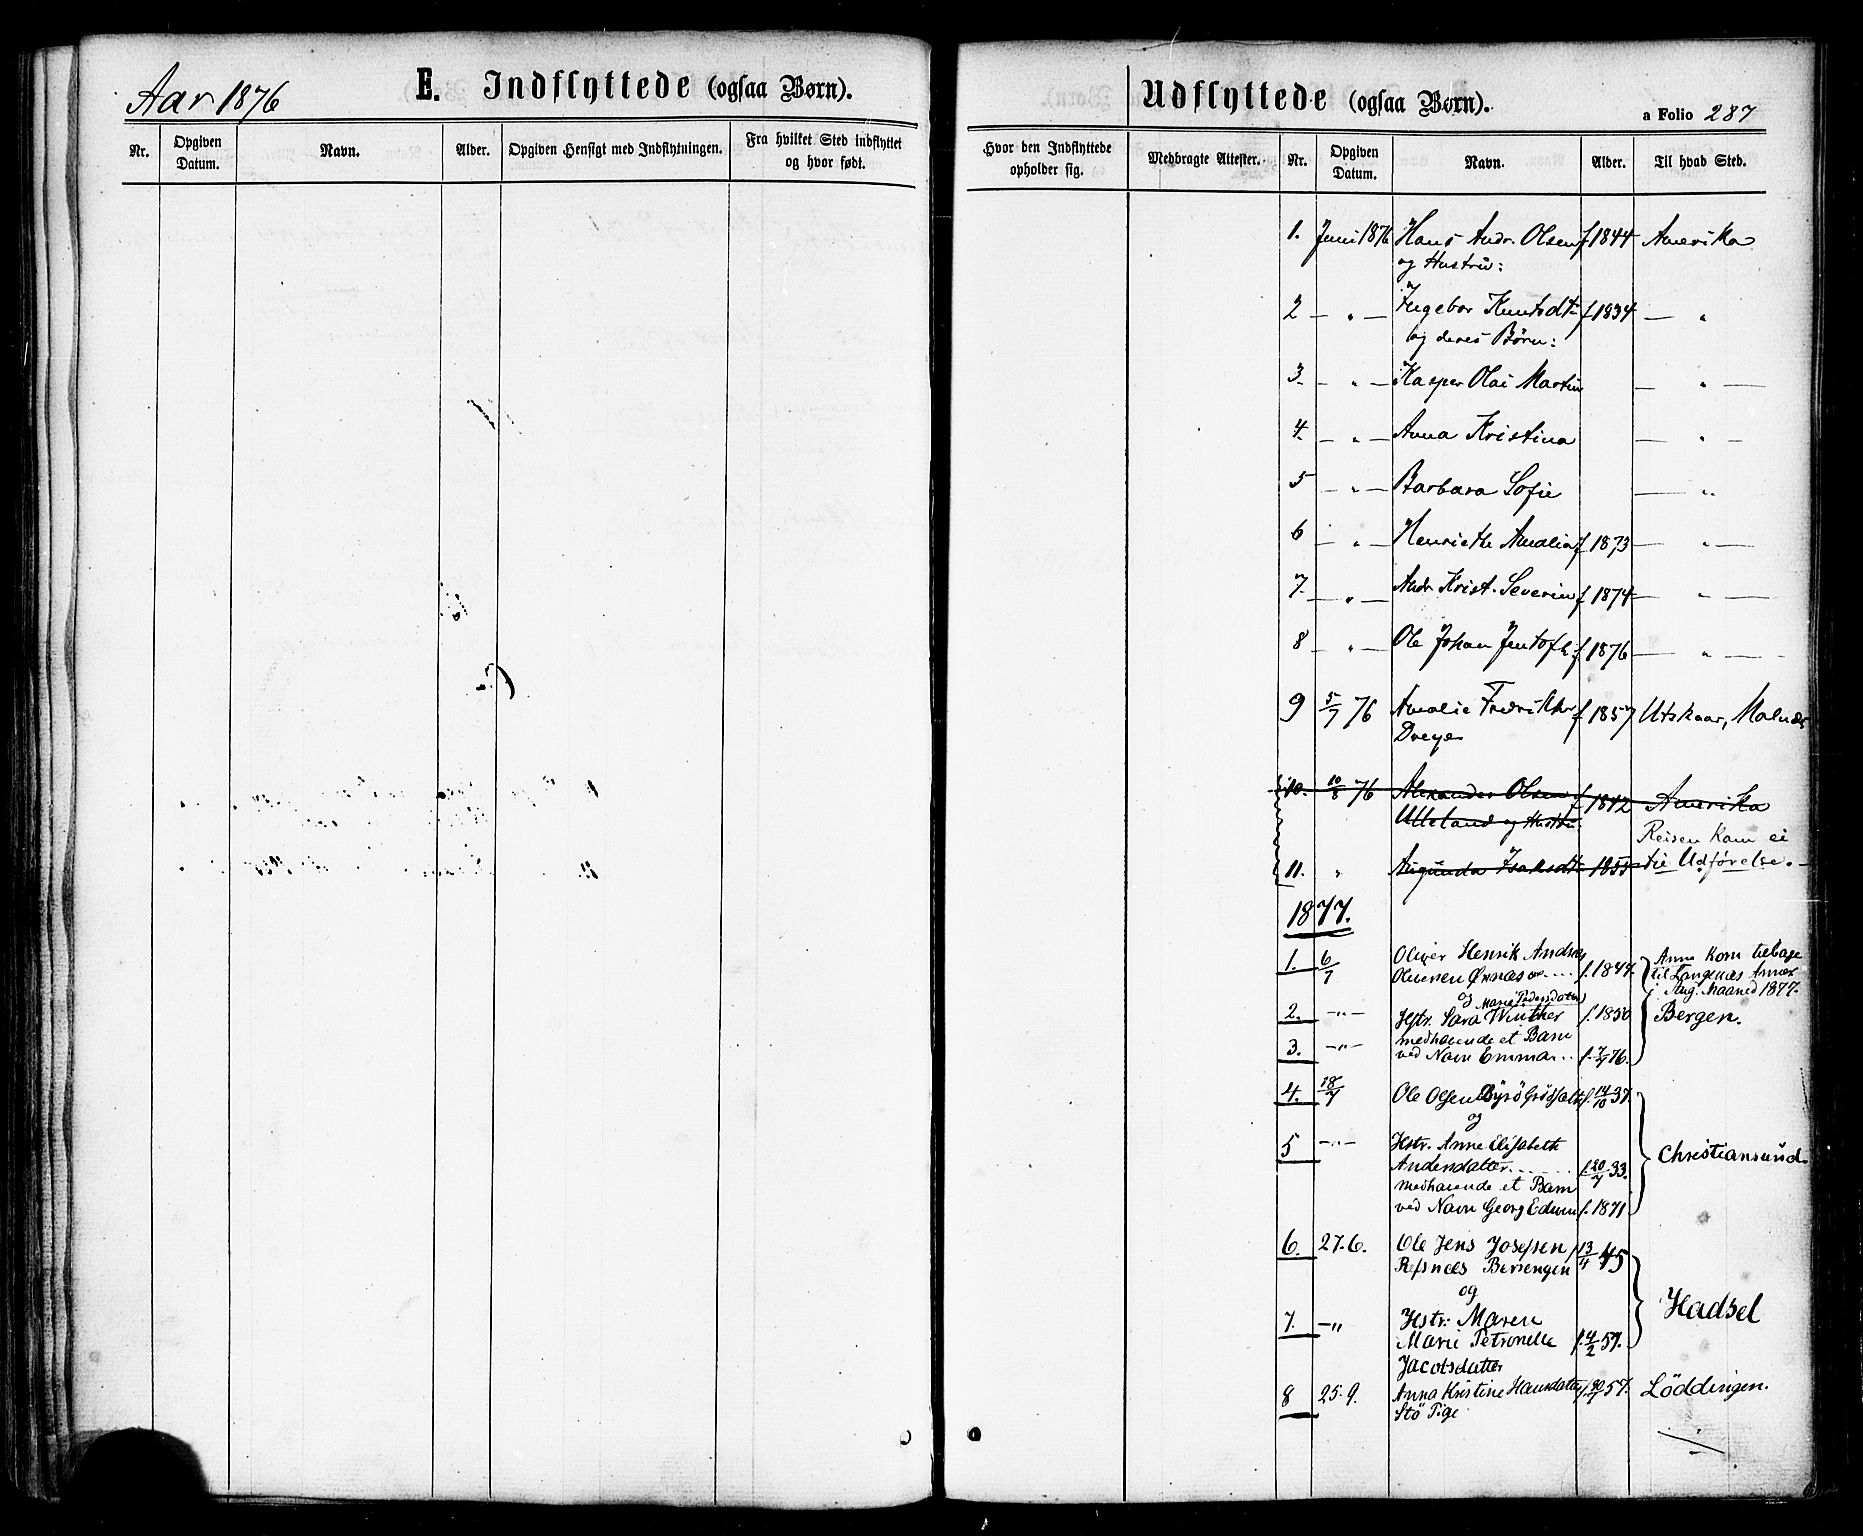 Aar 1876
E. Indflyttede (ogsaa Børn).
Nr.
Opgiven Datum.
Navn.
Alder.
Opgiven Hensigt med Indflytningen.
Fra hvilket Sted indflyttet og hvor født.
Udflyttede (ogsaa Børn).
a Folio 287
Hvor den Indflyttede opholder sig.
Medbragte Attester.
Nr.
Opgiven Datum.
Navn.
Alder.
Til hvad Sted.
1. Juni 1876 Hans Andr. Olsen f 1844 Amerika
og Hustru:
2 — " — Ingebor Knutsdt f 1834 — "
og deres Børn:
3 — " — Kasper Olai Martin — " —
4. — " — Anna Kristina — " —
5 — " — Barbara Sofie — " —
6 — " — Henriette Amalia f 1873 — " —
7. — " — Andr Krist. Severin f 1874 — " —
8 — " — Ole Johan Jentoft f 1876 — " —
9 5/7 76 Amalie Fredrikke f 1857 Utskaar, Malnes
Dreyer
10. 10/8 76 Alexander Olsen f 1842 Amerika
Ulleland og Hustru
Reisen kom ei
11. " Isaksdt 1855 til Udførelse.
1877.
1. 6/7 Oliver Henrik Andreas
Oliversen Ørnæs f. 1844.
Anm kom tilbage
til Langenæs Annex
i Aug. Maaned 1877.
og Marie Pedersdatter
2. —"— Hstr. Sara Winther f. 1850 Bergen.
medhavende et Barn
3. —"— ved Navn Emma .. f. 7/4 76.
4. 18/7 Ole Olsen f. 14/10 37.
og
5 —"— Hstr. Anne Elisabeth
Andersdatter f. 20/7 33.
Christiansund.
medhavende et Barn
ved Navn Georg Edwin f. 1871
6. 27.6. Ole Jens Josefsen f 13/4 45
Refsnæs
og
7. —" Hstr. Maren
Marie Petronelle f. 4/2 57.
Jacobsdatter
Hadsel
8 25.9. Anna Kristine Hansdatter 57. Löddingen.
Stö Pige